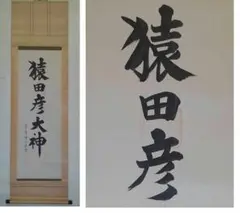 猿田彦大神
猿田彦